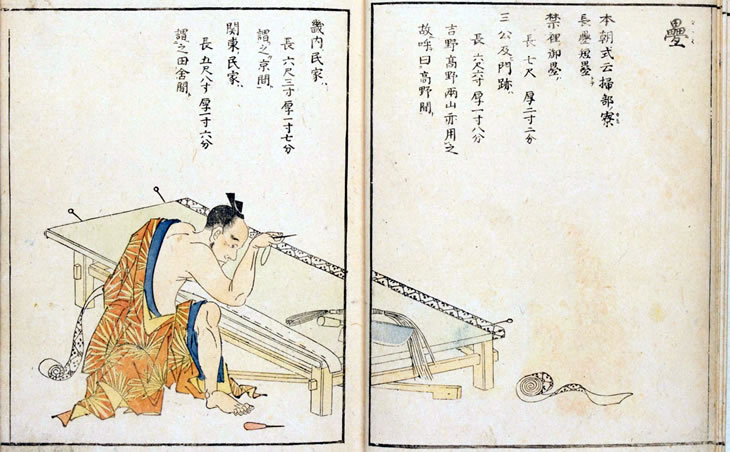 疊
本朝式云掃部寮
長疊短疊
禁裡御疊
長七尺 厚二寸二分
三公及門跡
長六尺六寸厚一寸八分
吉野高野兩山亦用之
故呼曰高野間
畿内民家
長六尺三寸厚一寸七分
謂之京間
関東民家
長五尺八寸厚一寸六分
謂之田舎間